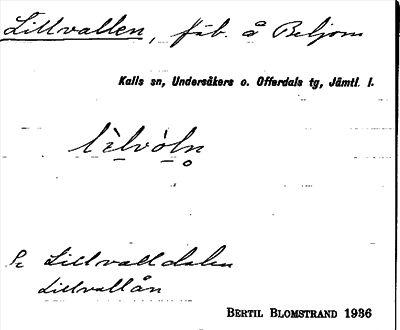 Lillvallen, fäb. å Beljom
Kalls sn, Undersåkers o. Offerdals tg, Jämtl. l.
lìlvòln̥
Se Lillvalldalen
Lillvallån
BERTIL BLOMSTRAND 1936